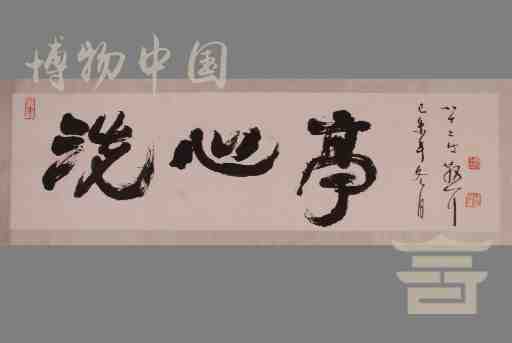 博物中国
洗心亭
八十二
己未年冬月